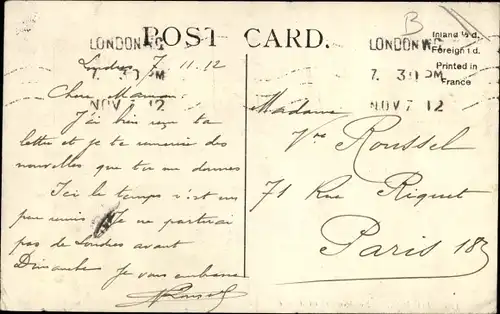 POST CARD.
B
Inland ½ d.
Foreign 1 d.
Printed in
France
LONDON W.C
7. 30 PM
NOV 7 12
LONDON W.C
7. 30 PM
NOV 7 12
Londres 7. 11. 12
Chere Maman
J'ai bien reçu ta
lettre et je te remercie des
nouvelles que tu me donnes
Ici le temps s'est un
peu remis Je ne partirai
pas de Londres avant
Dimanche Je vous embrasse
Roussel
Madame
Vve Roussel
71 Rue Riquet
Paris 18e